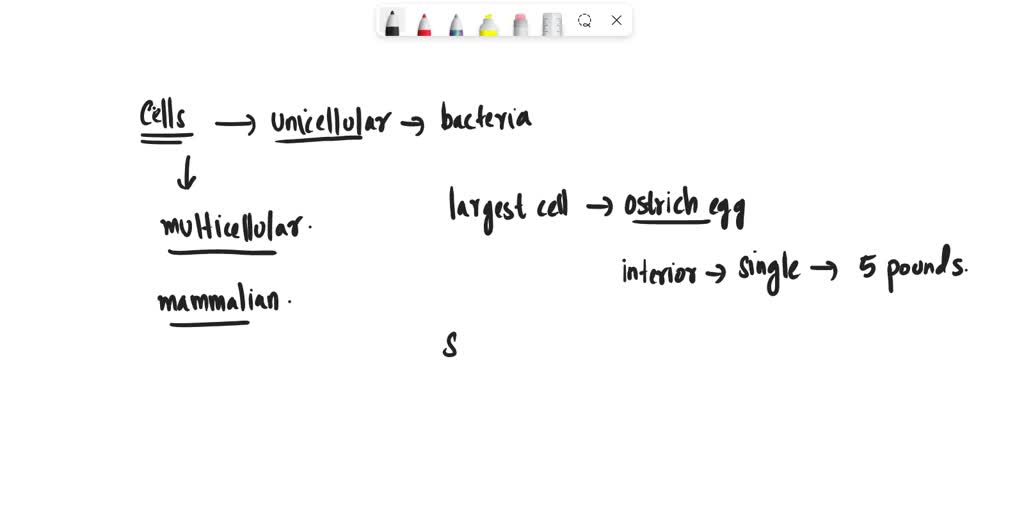 Cells → unicellular → bacteria
↓
multicellular.
largest cell → ostrich egg
interior → single → 5 pounds.
mammalian.
S